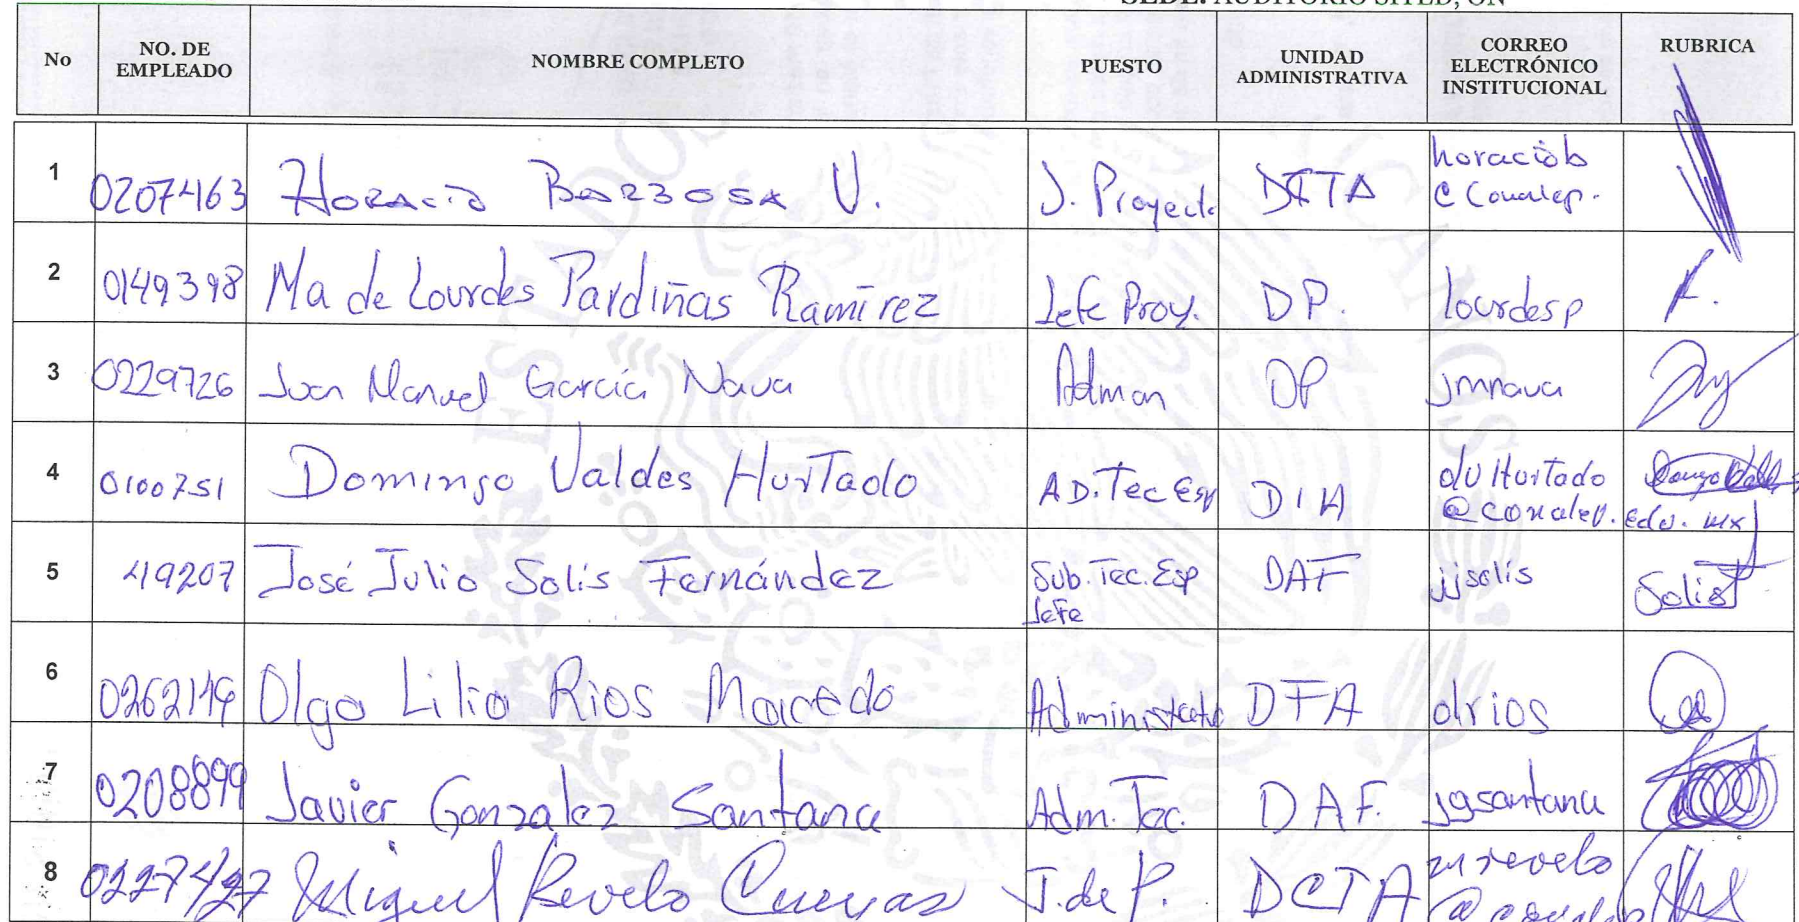 SEDE: AUDITORIO SITED, ON
No NO. DE EMPLEADO NOMBRE COMPLETO PUESTO UNIDAD ADMINISTRATIVA CORREO ELECTRÓNICO INSTITUCIONAL RUBRICA
1 0207463 Horacio Barbosa V. J. Proyecto horaciob @ Conalep.
2 0149398 Ma de Lourdes Pardiñas Ramírez Jefe Proy. DP. lourdesp
3 0229726 Juan Manuel García Nava Admon DP jmnava
4 0100751 Domingo Valdes Hurtado AD. Tec Esp DIA dvHurtado @conalep.edu.mx
5 49207 José Julio Solís Fernández Sub. Tec. Esp Jefe DAF jjsolis Solis
6 Olga Lilia Rios Macedo Administrativo DFA olrios
7 0208899 Javier Gonzalez Santana Adm. Tec. DAF. jgsantana
8 Miguel Revelo Cuevas J. de P. DCTA mrevelo @conalep
ESTADOS MEXICANOS